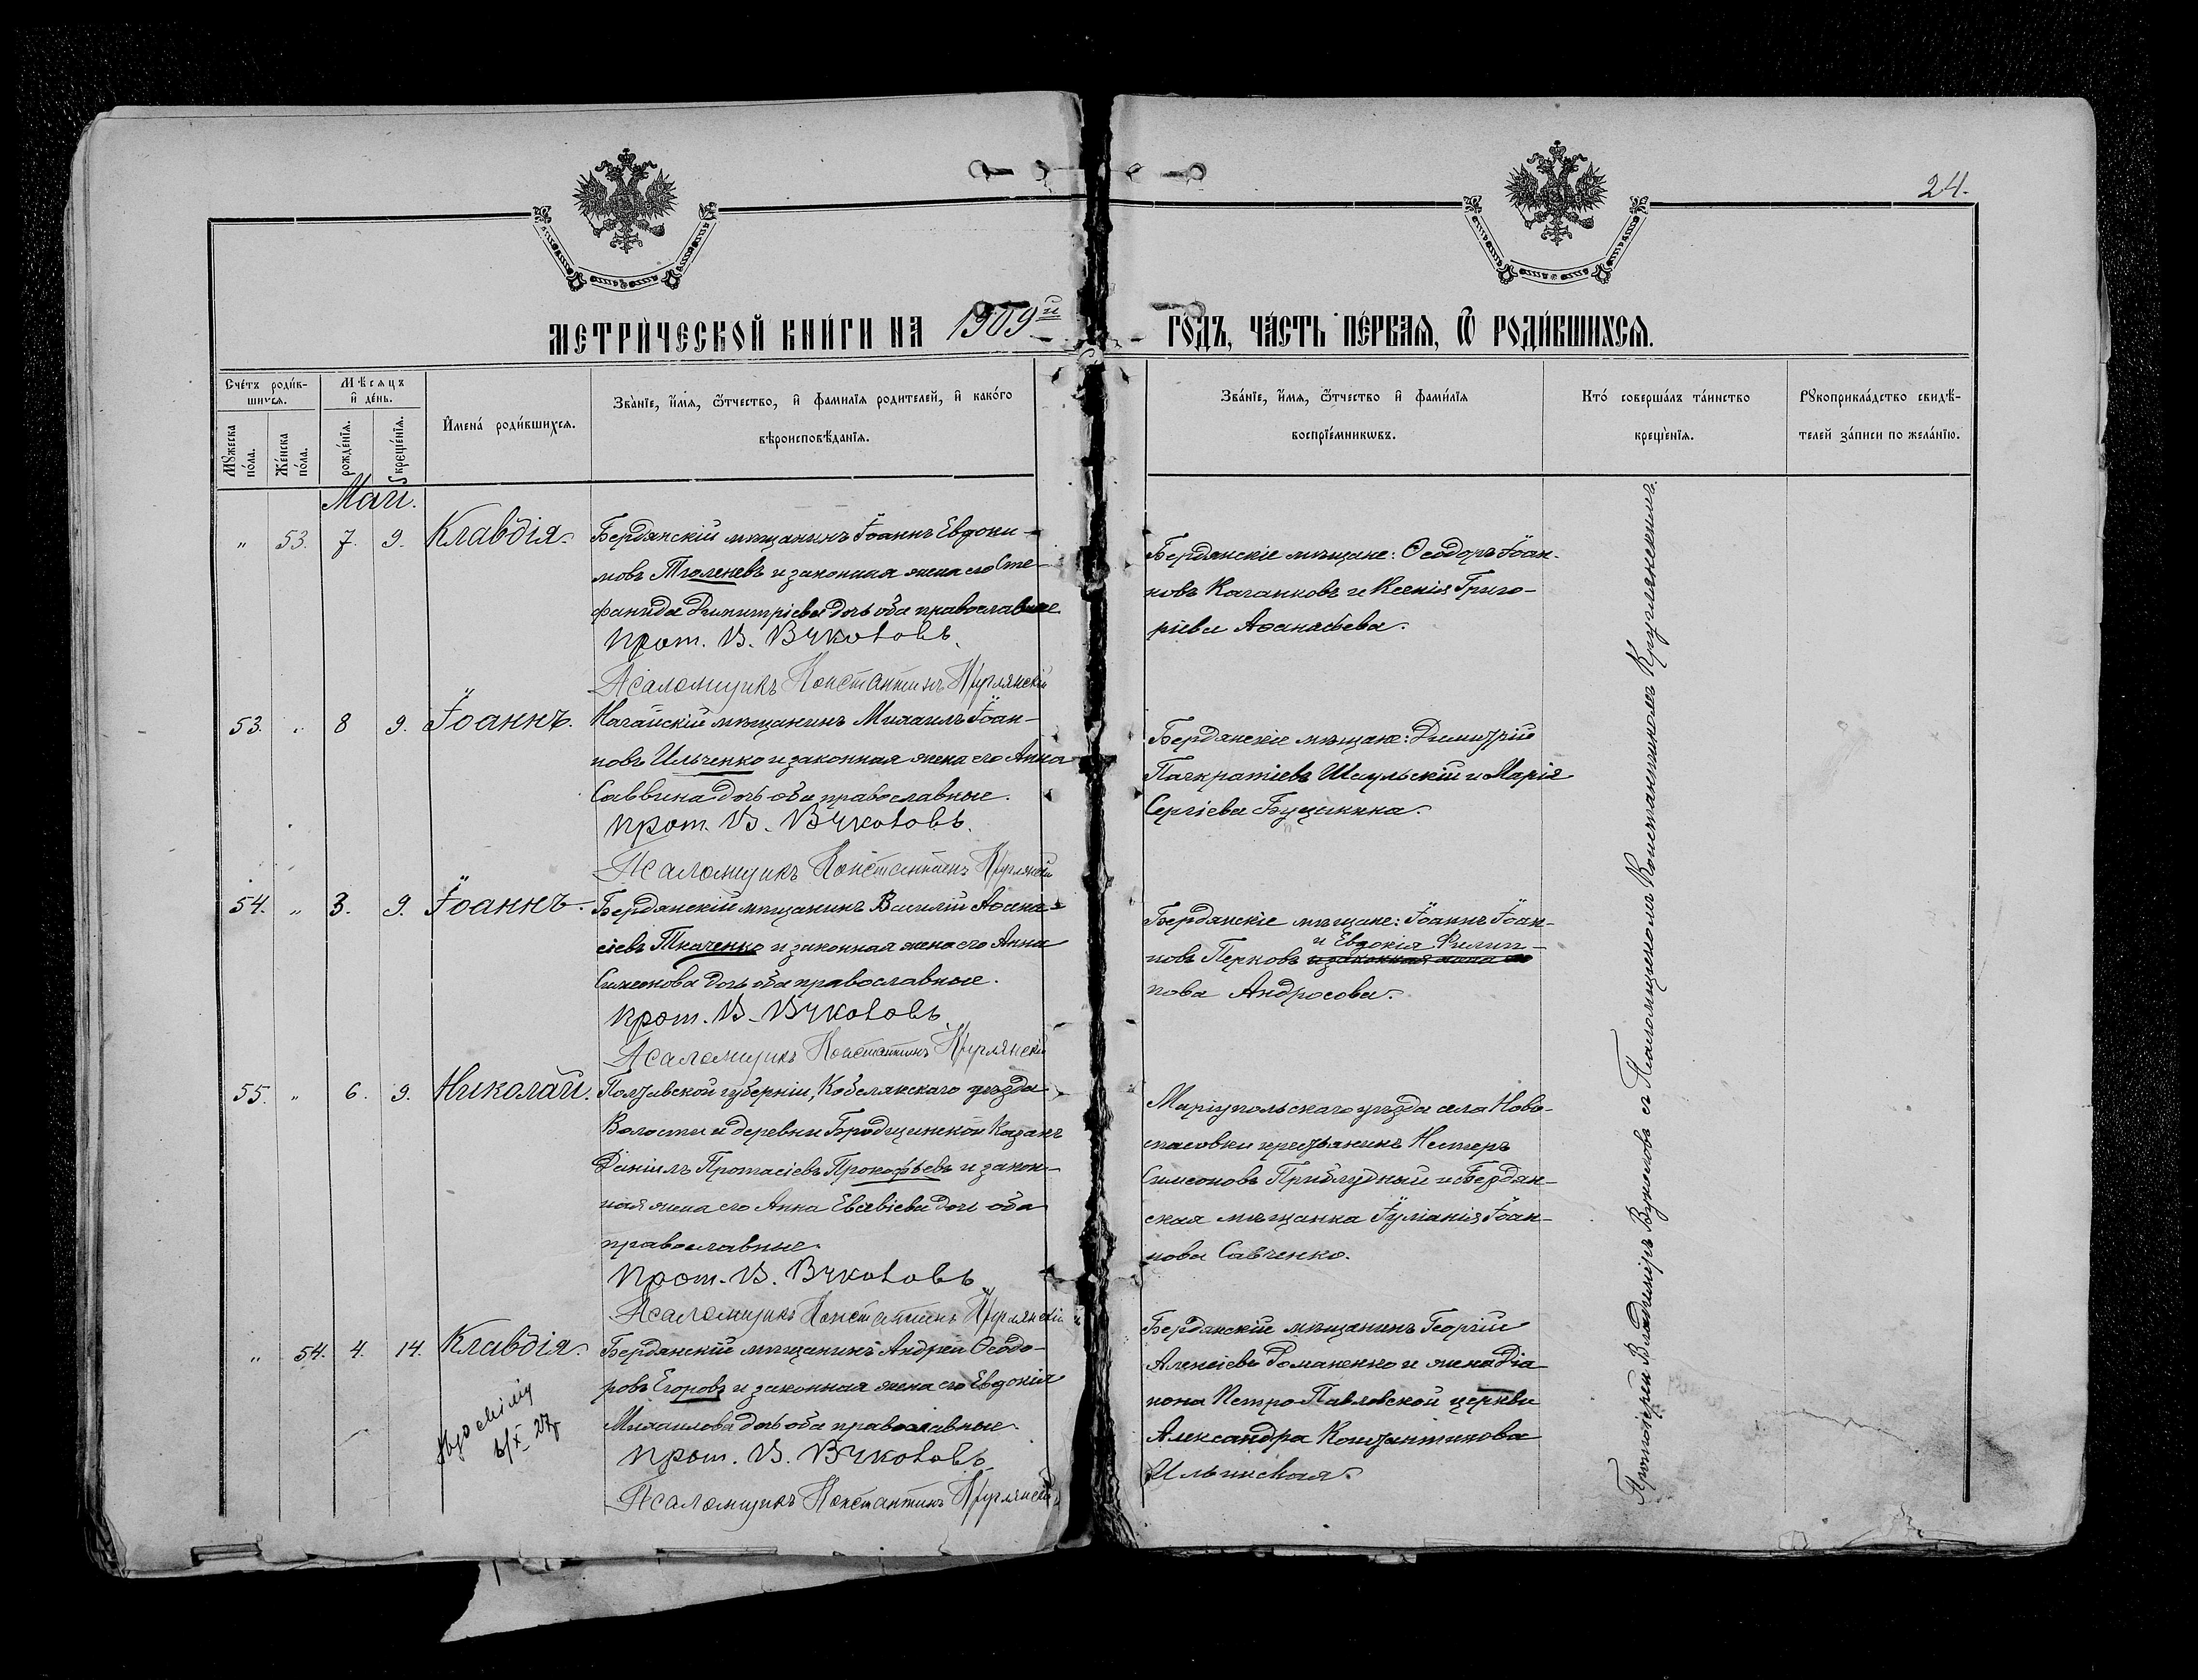 24.
МЕТРИЧЕСКОЙ КНИГИ НА 1909й ГОДЪ, ЧАСТЬ ПЕРВАЯ, Ѿ РОДИВШИХСЯ.
Счетъ родив-
шихся.
Мужеска
пола.
Женска
пола.
Мѣсяцъ
и день.
рожденія.
крещенія.
Имена родившихся.
Званіе, имя, ѿтчество, и фамилія родителей, и какого
вѣроисповѣданія.
Званіе, имя, ѿтчество и фамилія
воспріемниковъ.
Кто совершалъ таинство
крещенія.
Рукоприкладство свидѣ-
телей записи по желанію.
Май.
" 53. 7. 9. Клавдія.
Бердянскій мѣщанинъ Іоаннъ Евдоки-
мовъ Тюленевъ и законная жена его Сте-
фанида Димитріева дочь оба православные
Прот. В. Вуколовъ.
Псаломщикъ Константинъ Круглянскій
Бердянскіе мѣщане: Ѳеодоръ Іоан-
новъ Каганковъ и Ксенія Григо-
ріева Аѳанасьева.
53. " 8 9. Іоаннъ.
Ногайскій мѣщанинъ Михаилъ Іоан-
новъ Ильченко и законная жена его Анна
Саввина дочь оба православные.
Прот. В. Вуколовъ.
Псаломщикъ Константинъ Круглянскій
Бердянскіе мѣщане: Димитрій
Панкратіевъ Шаульскій и Марія
Сергіева
54. " 3. 9. Іоаннъ.
Бердянскій мѣщанинъ Василій Аѳана-
сіевъ Ткаченко и законная жена его Анна
Симеонова дочь оба православные.
Прот. В. Вуколовъ
Псаломщикъ Константинъ Круглянскій
Бердянскіе мѣщане: Іоаннъ Іоан-
и Евдокія Филип-
новъ Перковъ и законная жена его
пова Андросова.
55. " 6. 9. Николай.
Полтавской губерніи, Кобелякскаго уѣзда
Волости и деревни Бродщинской Казакъ
Даніилъ Протасіевъ Прокофьевъ и закон-
ная жена его Анна Евсевіева дочь оба
православные.
Прот. В. Вуколовъ
Псаломщикъ Константинъ Круглянскій
Маріупольскаго уѣзда села Ново-
спасовки крестьянинъ Несторъ
Симеоновъ Приблудный и Бердян-
ская мѣщанка Іуліанія Іоан-
нова Савченко.
" 54. 4. 14. Клавдія.
Бердянскій мѣщанинъ Андрей Ѳеодо-
ровъ Егоровъ и законная жена его Евдокія
Михаилова дочь оба православные.
Прот. В. Вуколовъ
Псаломщикъ Константинъ Круглянскій
Бердянскій мѣщанинъ Георгій
Алексіевъ Романенко и жена Діа-
кона Петро-Павловской церкви
Александра Константинова
Ильинская.
Протоіерей Владиміръ Вуколовъ съ Псаломщикомъ Константиномъ Круглянскимъ.